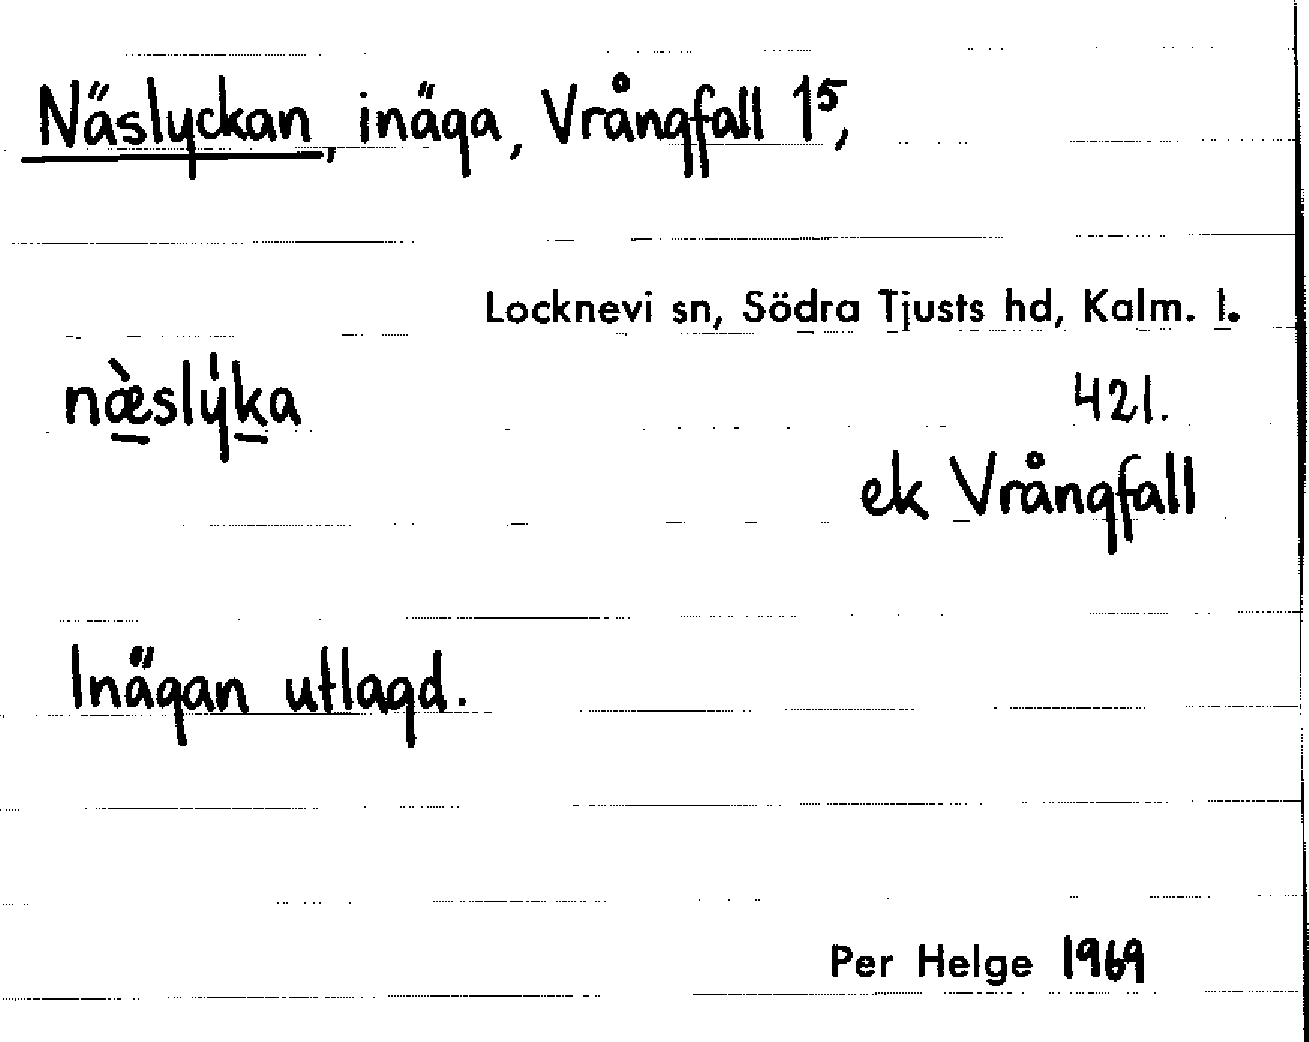 Näslyckan, inäga, Vrångfall 1⁵,
Locknevi sn, Södra Tjusts hd, Kalm. l.
næ̀sly̍ka
421.
ek Vrångfall
Inägan utlagd.
Per Helge 1969